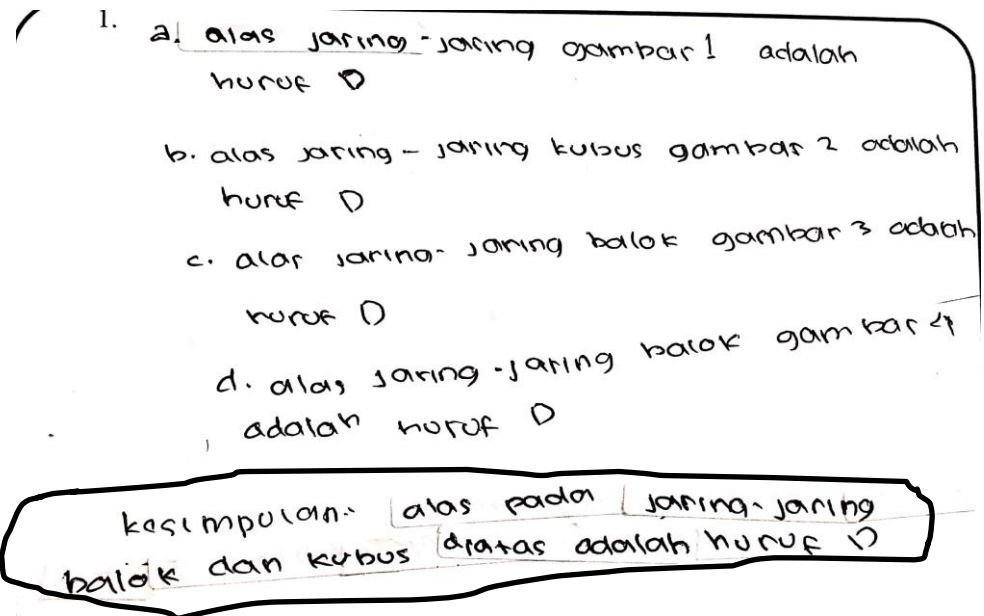 1.
a. alas jaring-jaring gambar 1 adalah
huruf D
b. alas jaring-jaring kubus gambar 2 adalah
huruf D
c. alas jaring-jaring balok gambar 3 adalah
huruf D
d. alas jaring-jaring balok gambar 4
adalah huruf D
kesimpulan: alas pada jaring-jaring
balok dan kubus diatas adalah huruf D